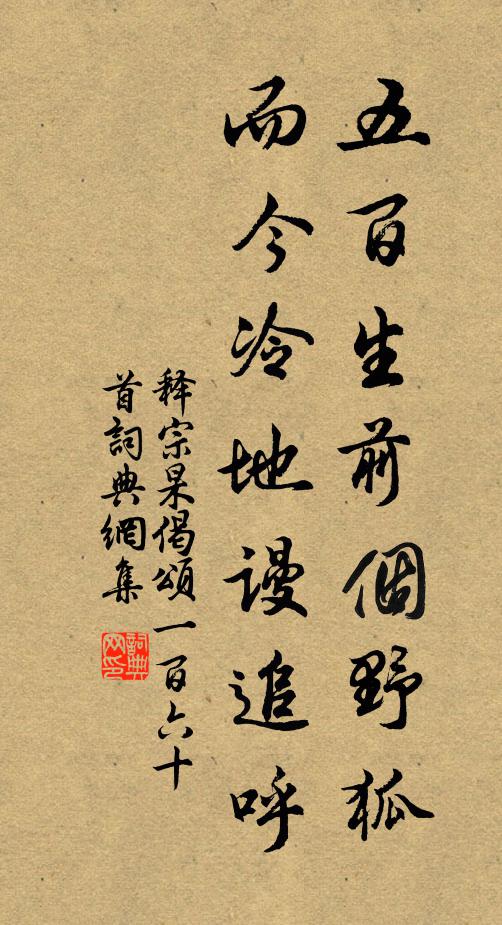 五百生前個野狐
而今冷地謾追呼
释宗杲偈頌一百六十
首詞典網集
詞典网印